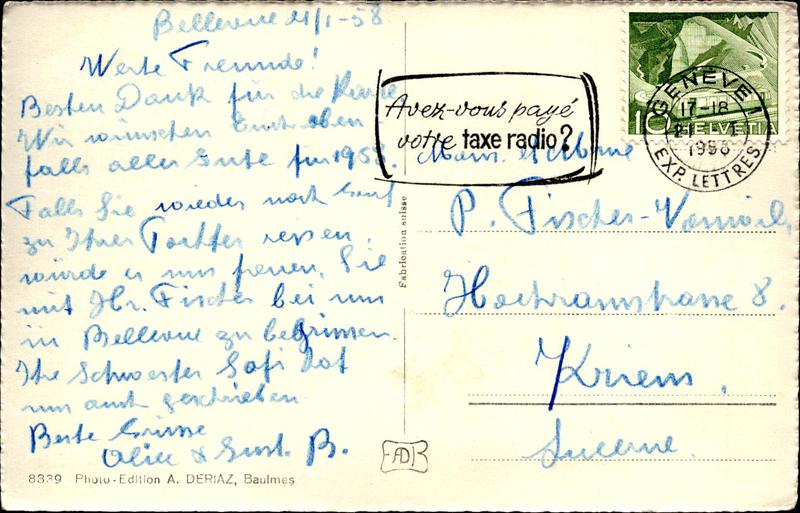 Bellevue 21/1-58
Werte Freunde!
Besten Dank für die Karte
Wir wünschen Euch eben
falls alles Gute für 1958.
Falls Sie wieder nach Genf
zu Ihrer Tochter reisen
würde es uns freuen, Sie
mit Hr. Fischer bei uns
in Bellevue zu begrüssen.
Ihre Schwester Sofi hat
uns auch geschrieben
Beste Grüsse
Alice & Gust. B.
8339 Photo-Edition A. DERIAZ, Baulmes
Fabrication suisse
AD
Avez-vous payé
votre taxe radio?
GENÈVE 1
17-18
21. 1.
1958
EXP. LETTRES
10 HELVETIA
Mons. et Mme
P. Fischer-
Hochrainstrasse 8.
Kriens,
Lucerne.